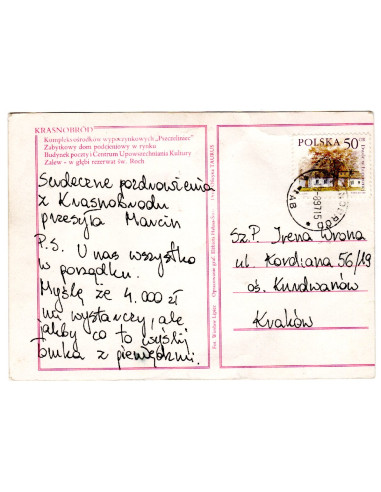 KRASNOBRÓD
Kompleks ośrodków wypoczynkowych „Puszczaniec”
Zabytkowy dom podcieniowy w rynku
Budynek poczty i Centrum Upowszechniania Kultury
Zalew - w głębi rezerwat św. Roch
Serdeczne pozdrowienia
z Krasnobrodu
przesyła Marcin
P.S. U nas wszystko
w porządku.
Myślę że 4.000 zł
mi wystarczy, ale
jakby co to wyślij
Tomka z pieniędzmi.
POLSKA 50 gr
Sz.P. Irena Wrona
ul. Kordiana 56/19
oś. Kurdwanów
Kraków